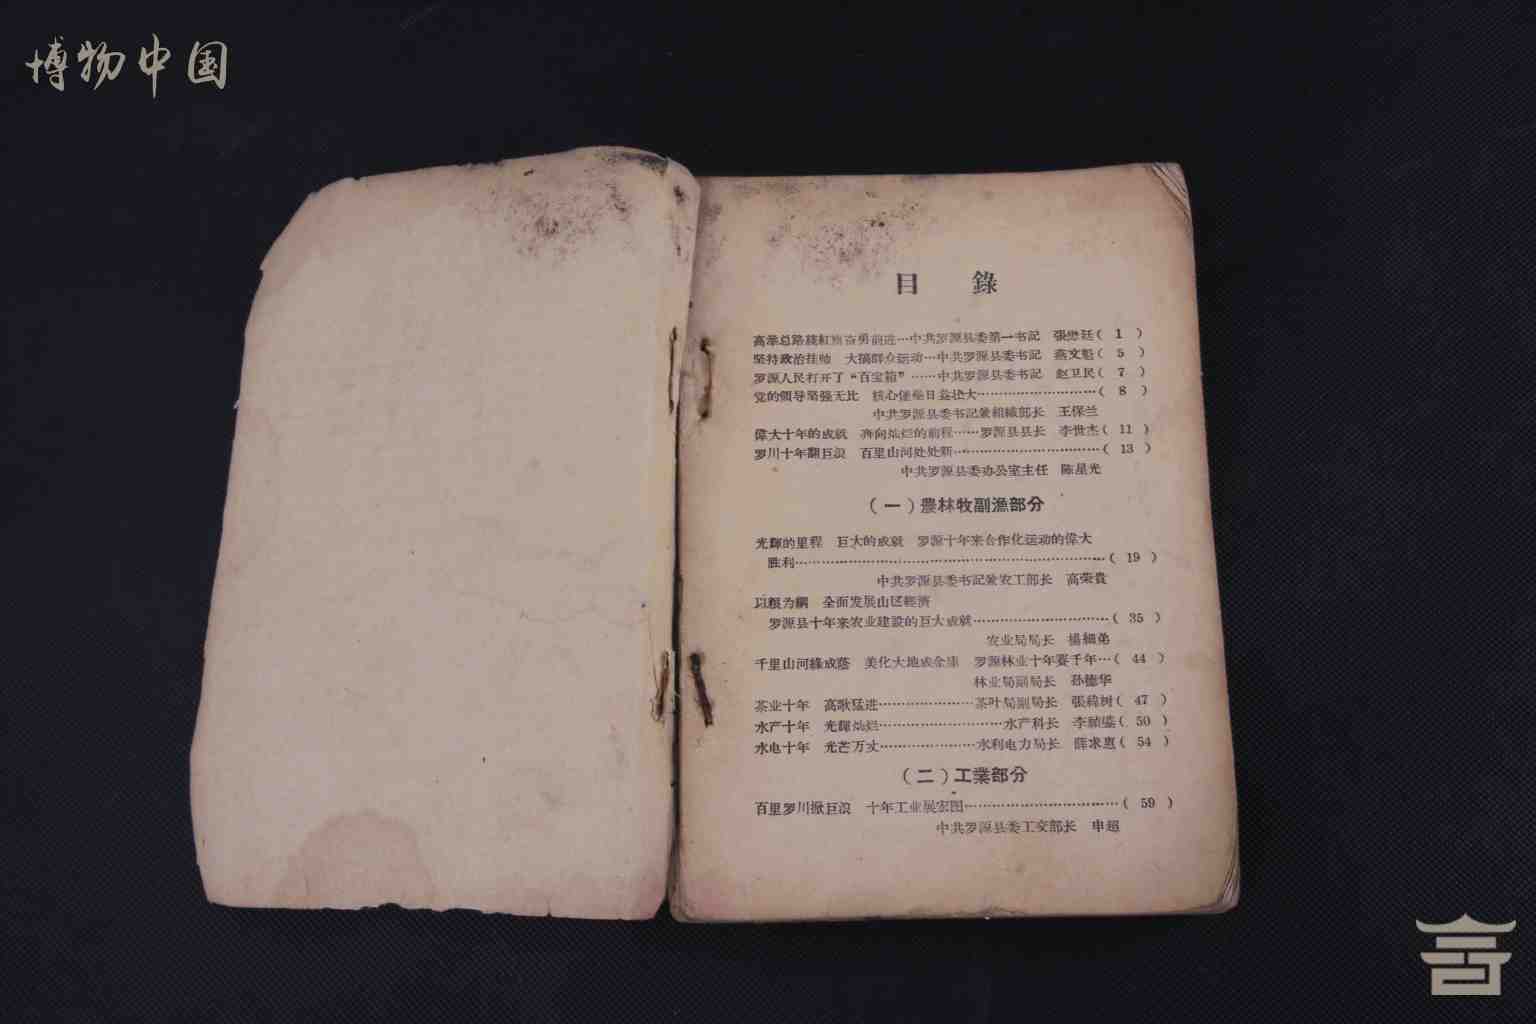 博物中国
目 錄
高举总路綫紅旗奋勇前进…中共罗源县委第一书記 張懋廷( 1 )
坚持政治挂帅 大搞群众运动…中共罗源县委书記 燕文魁( 5 )
罗源人民打开了“百宝箱”……中共罗源县委书記 赵卫民( 7 )
党的領导坚强无比 核心堡壘日益壮大…………………………( 8 )
中共罗源县委书記兼組織部长 王保兰
偉大十年的成就 奔向灿烂的前程……罗源县县长 李世杰( 11 )
罗川十年翻巨浪 百里山河处处新…………………………( 13 )
中共罗源县委办公室主任 陈星光
(一)農林牧副漁部分
光輝的里程 巨大的成就 罗源十年来合作化运动的偉大
胜利…………………………………………………………( 19 )
中共罗源县委书記兼农工部长 高荣貴
以粮为綱 全面发展山区經济
罗源县十年来农业建設的巨大成就…………………………( 35 )
农业局局长 楊細弟
千里山河綠成蔭 美化大地成金庫 罗源林业十年賽千年…( 44 )
林业局副局长 孙德华
茶业十年 高歌猛进…………………茶叶局副局长 張 树( 47 )
水产十年 光輝灿烂………………………水产科长 李 鎏( 50 )
水电十年 光芒万丈…………………水利电力局长 薛求惠( 54 )
(二)工業部分
百里罗川掀巨浪 十年工业展宏图……………………………( 59 )
中共罗源县委工交部长 申超